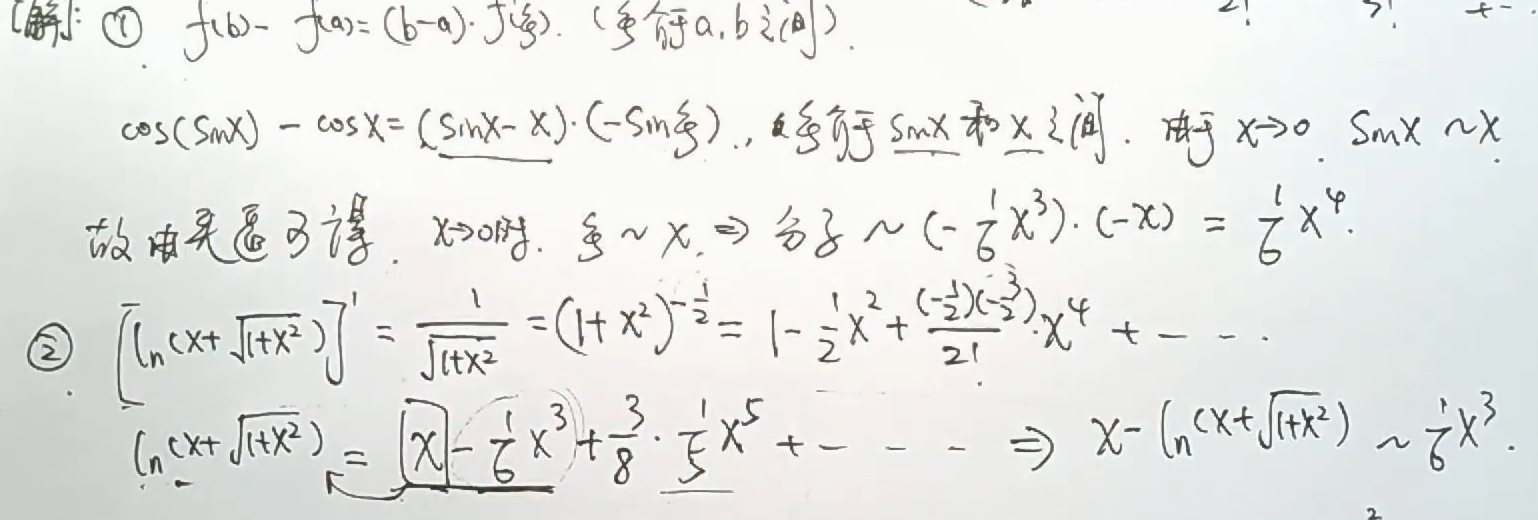 [解]: ① f(b) - f(a) = (b-a)·f'(ξ). (ξ介于a,b之间).
2! 3! +-
cos(sinx) - cosx = (sinx - x)·(-sinξ)., ξ介于 sinx 和 x 之间. 由于 x→0. sinx ~ x.
故由夹逼可得. x→0时. ξ ~ x. ⇒ 分子 ~ (-1/6 x³)·(-x) = 1/6 x⁴.
② [ln(x+√(1+x²))]' = 1/√(1+x²) = (1+x²)^(-1/2) = 1 - 1/2 x² + (-1/2)(-3/2)/2! · x⁴ + - - - .
ln(x+√(1+x²)) = x - 1/6 x³ + 3/8 · 1/5 x⁵ + - - - ⇒ x - ln(x+√(1+x²)) ~ 1/6 x³.
2